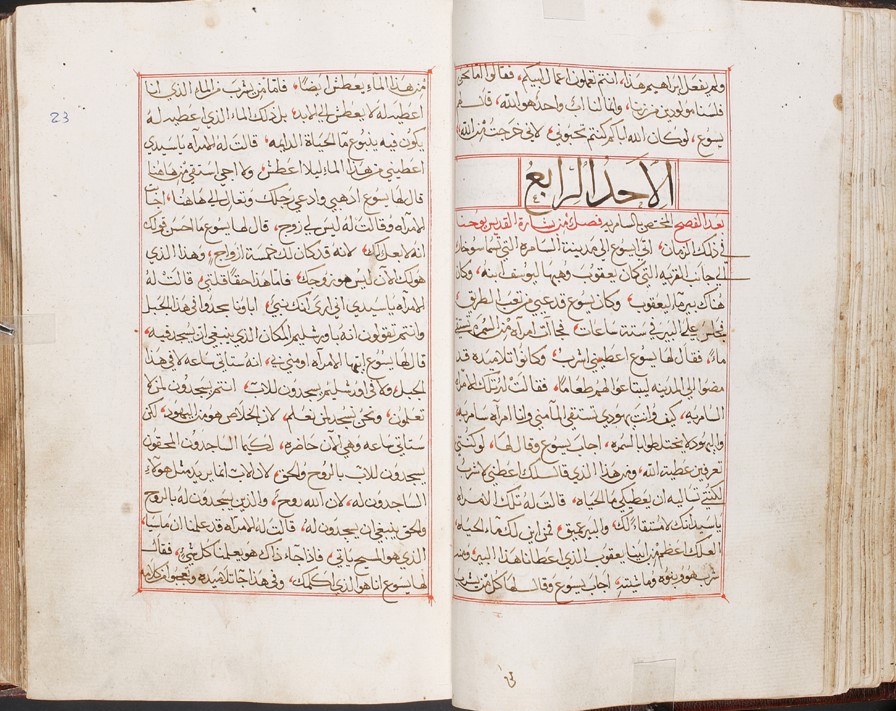 ولم يفعل ابراهيم هذا، انتم تعملون اعمال ابيكم، فقالوا اما نحن
فلسنا مولودين من زنا، وانما لنا اب واحد هو الله، قال لهم
يسوع، لو كان الله اباكم كنتم تحبوني، لاني خرجت من الله،
الاحد الرابع
بعد الفصح المختص بالسامريه فصل من بشارة القديس يوحنا
في ذلك الزمان، اتى يسوع الى مدينة السامره التي تسما سوخار
الى جانب القريه التي كان يعقوب وهبها ليوسف ابنه، وكان
هناك بير ما ليعقوب، وكان يسوع قد عيي من تعب الطريق،
فجلس على البير في ستة ساعات، فجات امراه من السامره تستقي
ماءً، فقال لها يسوع اعطيني اشرب، وكانوا تلاميذه قد
مضوا الى المدينه ليبتاعوا لهم طعاماً، فقالت له تلك الامراه
السامريه، كيف وانت يهودي تستقي الما مني وانا امراه سامريه
واليهود لا يختلطوا بالسمره، اجاب يسوع وقال لها، لو كنتي
تعرفين عطية الله، ومن هذا الذي قال لك اعطيني لاشرب
لكنتي تساليه ان يعطيكي ما الحياه، قالت له تلك الامراه
يا سيد انك لا مستقاء لك، والبير عميق، فمن اين لك ماء الحياه،
العلك اعظم من ابينا يعقوب الذي اعطانا هذا البير، ومنه
شرب هو وبنوه وماشيته، اجاب يسوع وقال لها كل من يشرب
من هذا الماء يعطش ايضاً، فاما من يشرب من الماء الذي انا
اعطيه له لا يعطش الى الابد، بل ذلك الماء الذي اعطيه له
يكون فيه ينبوع ما الحياة الدايمه، قالت له الامراه يا سيدي
اعطيني من هذا الماء ليلا اعطش، ولا اجي استقي من هاهنا
قال لها يسوع اذهبي وادعي رجلك وتعالي الى هاهنا، اجابت
الامراه وقالت له ليس لي زوج، قال لها يسوع ما احسن قولك
انه لا بعل لك، لانه قد كان لك خمسة ازواج، وهذا الذي
هو لك الان ليس هو زوجك، فاما هذا حقاً قلتي، قالت له
الامراه يا سيدي اني ارى انك نبي، اباونا سجدوا في هذا الجبل
وانتم تقولون انه باورشليم المكان الذي ينبغي ان يسجد فيه،
قال لها يسوع ايتها الامراه اومني بي، انه ستاتي ساعه لا في هذا
الجبل ولا في اورشليم يسجدون للاب، انتم تسجدون لمن لا
تعلمون، ونحن نسجد لمن نعلم، لان الخلاص هو من اليهود، لكن
ستاتي ساعه وهي الان حاضره، لكيما الساجدون المحقون
يسجدون للاب بالروح والحق، لان الاب انما يريد مثل هولاء
الساجدون له، لان الله روح، والذين يسجدون له بالروح
والحق ينبغي ان يسجدون له، قالت له الامراه قد علمنا ان ماسيا،
الذي هو المسيح ياتي، فاذا جاء ذاك هو يعلمنا كل شي، فقال
لها يسوع انا هو الذي اكلمك، وفي هذا جا تلاميذه وتعجبوا من كلامه
23